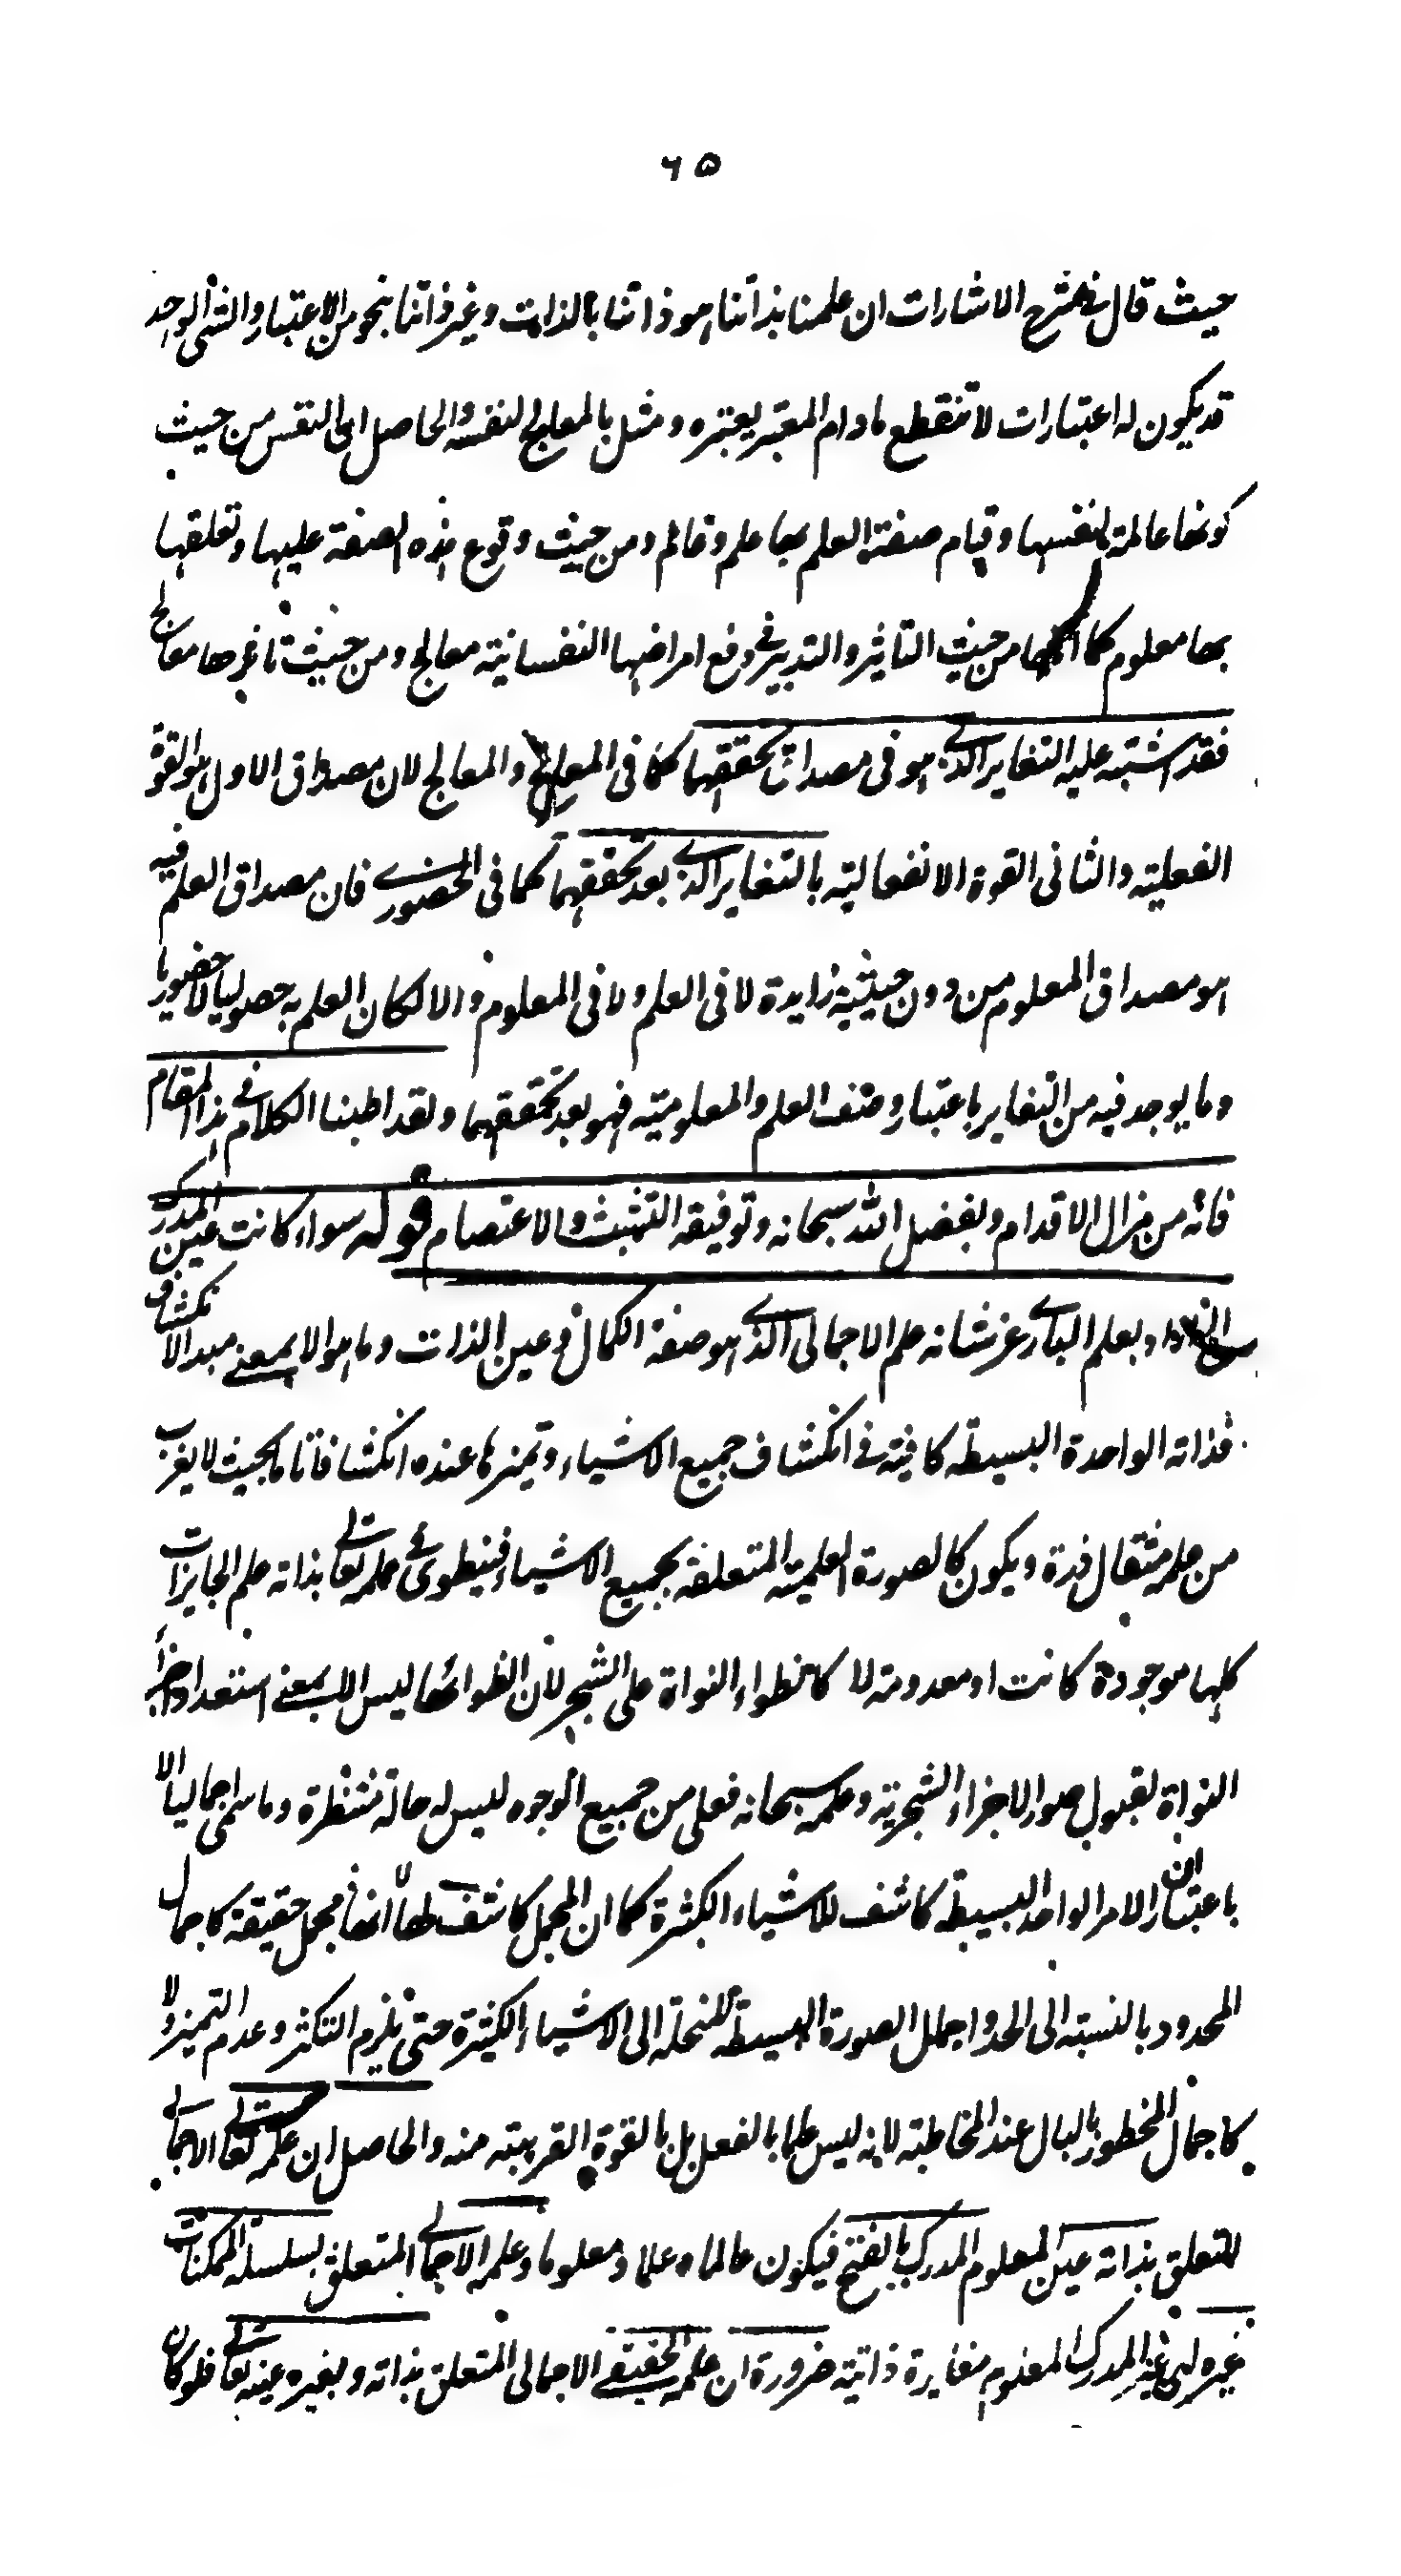 ٦٥
حيث قال في شرح الاشارات ان علمنا بذاتنا هو ذاتنا بالذات و غير ذاتنا بنحو من الاعتبار والشئ الواحد
قد يكون له اعتبارات لا تنقطع مادام المعتبر يعتبره ومثل بالمعالج لنفسه والحاصل ان النفس من حيث
كونها عالمة لنفسها وقيام صفة العلم بها علم وعالم ومن حيث وقوع هذه الصفة عليها وتعلقها
بها معلوم كما انها من حيث التاثير والتدبير في دفع امراضها النفسانية معالج ومن حيث تاثرها معالج
فقد اشتبه عليه التغاير الذي هو في مصداق تحققهما كما في المعالج والمعالج لان مصداق الاول هو القوة
الفعلية والثاني القوة الانفعالية بالتغاير الذي بعد تحققهما كما في الحضوري فان مصداق العلم فيه
هو مصداق المعلوم من دون حيثية زايدة لا في العلم ولا في المعلوم والا لكان العلم به حصوليا لا حضوريا
وما يوجد فيه من التغاير باعتبار وصف العلم والمعلومية فهو بعد تحققهما ولقد اطبنا الكلام في هذا المقام
فانه من مزال الاقدام وبفضل الله سبحانه وتوفيقه التثبث والاعتصام قوله سواء كانت عين المدرك
الخ وبعلم الباري عز شانه علم الاجمالي الذي هو صفة الكمال وعين الذات وما هو الا بمعنى مبدا الانكشاف
فذاته الواحدة البسيطة كافية في انكشاف جميع الاشياء وتميزها عنده انكشافا تاما بحيث لا يعزب
من علمه مثقال ذرة ويكون كالصورة العلمية المتعلقة بجميع الاشياء فينطوي في علمه تعالى بذاته علم الجايزات
كلها موجودة كانت او معدومة لا كانطواء النواة على الشجر لان انطوائها ليس الا بمعنى استعداد اجزاء
النواة لقبول صور الاجزاء الشجرية وعلمه سبحانه فعلي من جميع الوجوه ليس له حالة منتظرة وما سمى اجماليا الا
باعتبار ان الامر الواحد البسيط كاشف للاشياء الكثيرة كما ان المجمل كاشف لها لا انها مجمل حقيقة كاجمال
المحدود بالنسبة الى الحد واجمال الصورة البسيطة المنحلة الى الاشياء الكثيرة حتى يلزم التكثر وعدم التميز ولا
كاجمال المخطور بالبال عند المخاطبة لانه ليس علما بالفعل بل بالقوة القريبة منه والحاصل ان علمه تعالى الاجمالي
المتعلق بذاته عين المعلوم المدرك بالفتح فيكون عالما وعلما ومعلوما وعلمه الاجمالي المتعلق بسلسلة الممكنات
غيره اي غير المدرك المعلوم مغايرة ذاتية ضرورة ان علمه الحقيقي الاجمالي المتعلق بذاته وبغيره عينه تعالى فلو كان